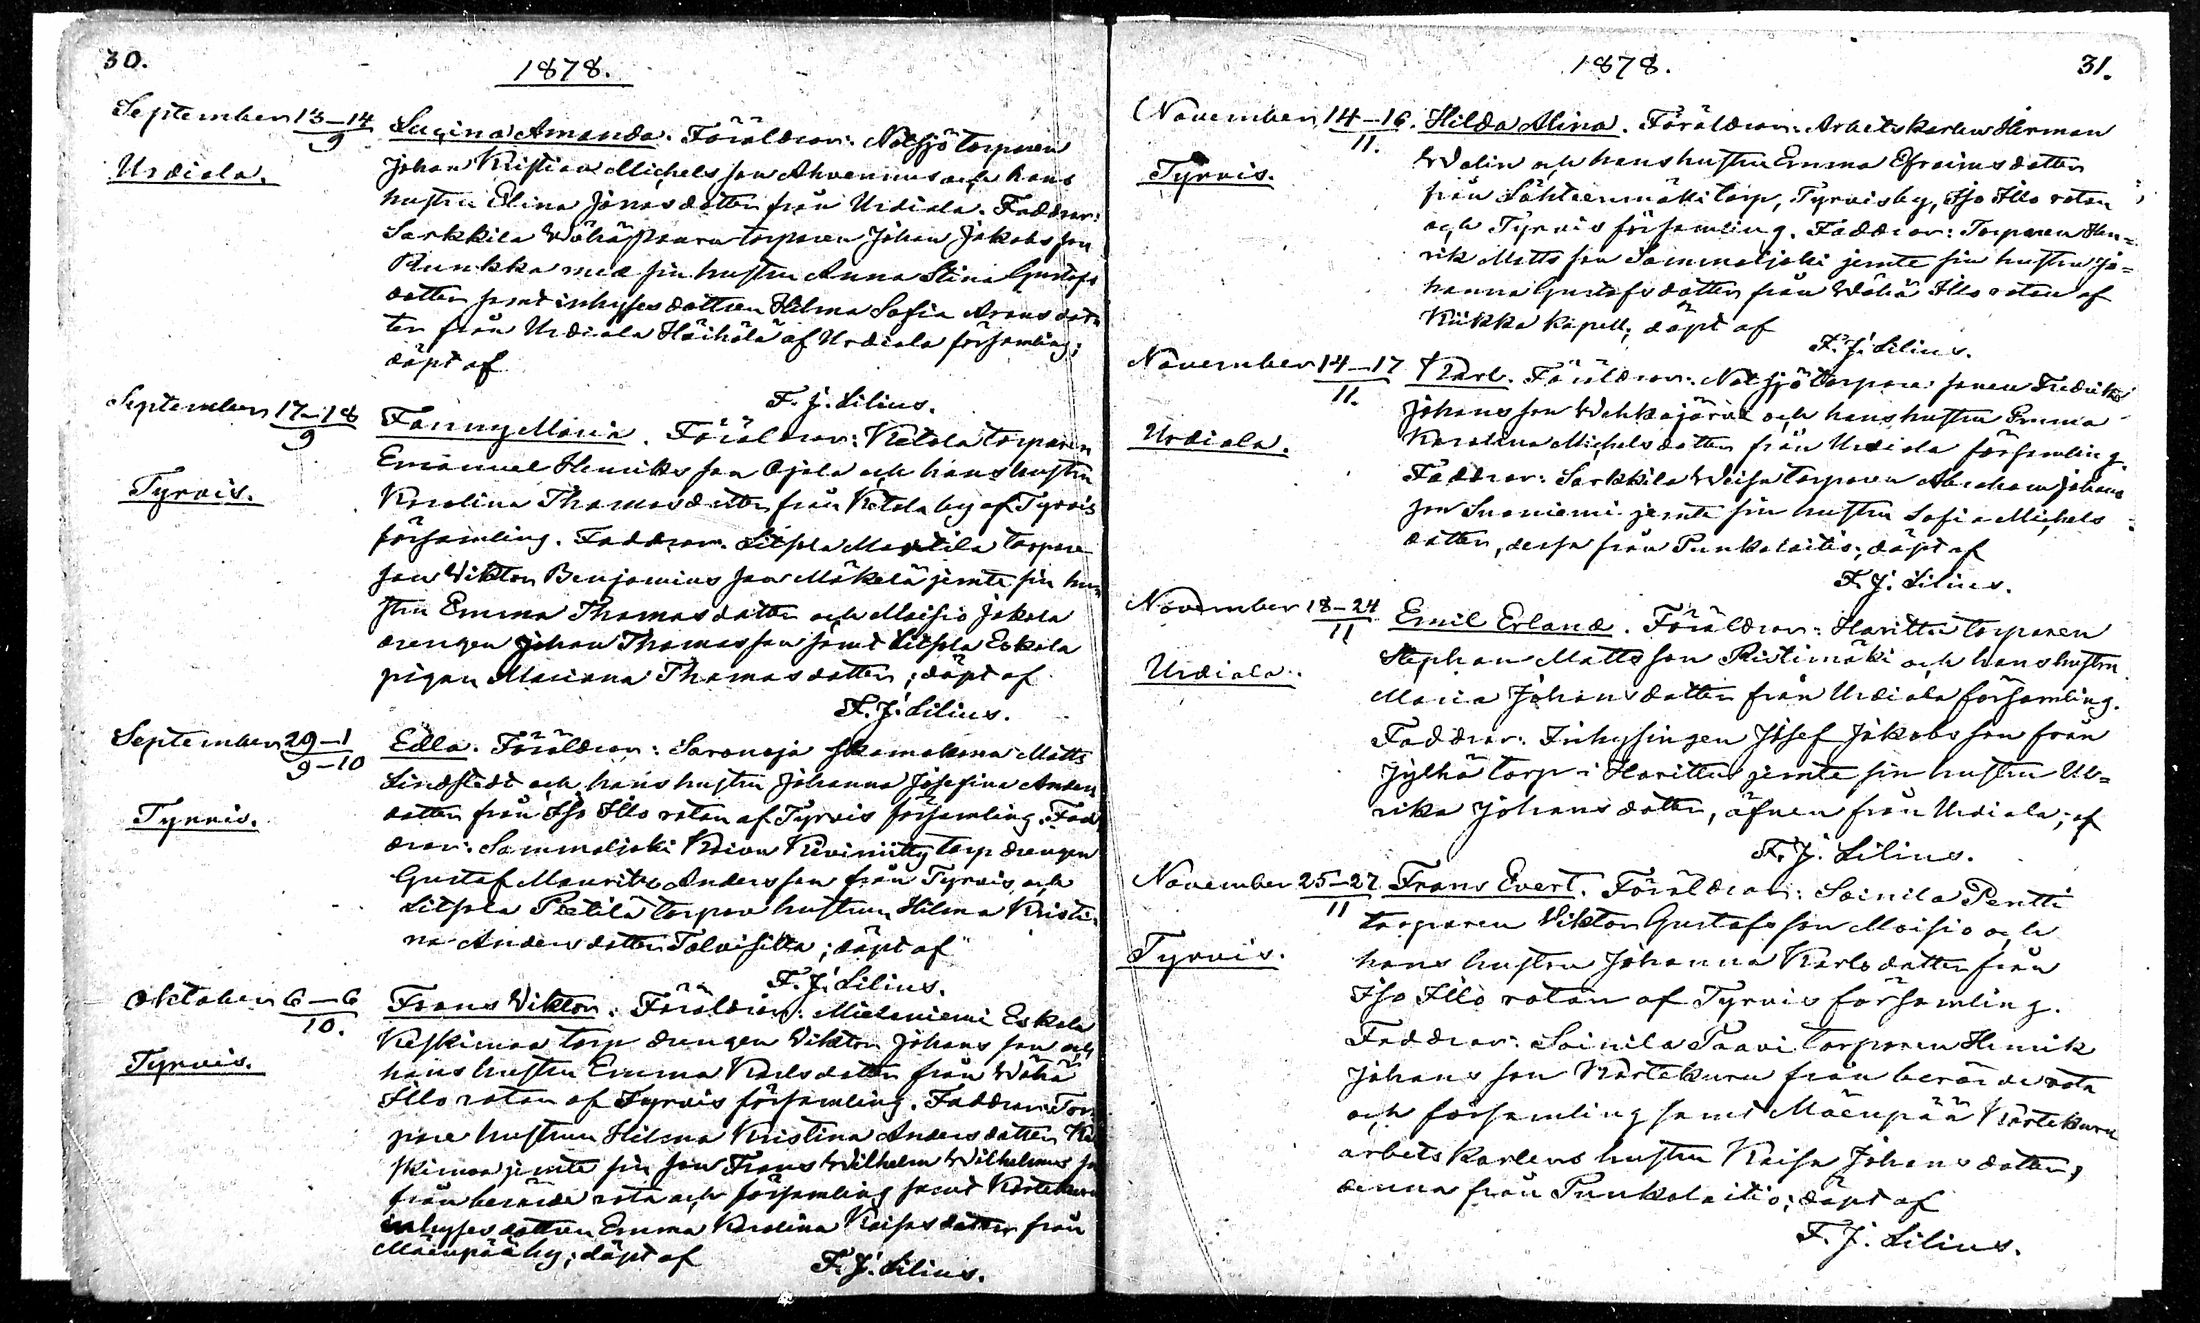 30.
1878.
September 13–14
9
Urdiala.
Lucina Amanda. Föräldrar: Notsjö torparen
Johan Kristian Michels son Ahvennus och hans
hustru Elina Jonas dotter från Urdiala. Faddrar:
Sarkkila Wähä Paavo torparen Johan Jakobs son
Runkka med sin hustru Anna Stina Gustafs
dotter samt inhyses dottren Hilma Sofia Arons dot
ter från Urdiala Häihälä af Urdiala församling;
döpt af
F. J. Lilius.
September 17–18
9
Tyrvis.
Fanny Maria. Föräldrar: Ketola torparen
Emanuel Henriks son Ojala och hans hustru
Karolina Thomas dotter från Ketola by af Tyrvis
församling. Faddrar: Liitsola Marttila torpare
son Viktor Benjamins son Mäkelä jemte sin hu-
stru Emma Thomas dotter och Moisio Jokela
drengen Johan Thomas son samt Liitsola Eskola
pigan Mariana Thomas dotter; döpt af
F. J. Lilius.
September 29–1
9–10
Tyrvis.
Edla. Föräldrar: Saronoja skomakaren Matts
Lindstedt och hans hustru Johanna Josefina Anders
dotter från Iso Illo rotan af Tyrvis församling. Fad
drar: Sammaljoki Koivu Kiviniitty torp drengen
Gustaf Mauritz Anders son från Tyrvis och
Liitsola Pietilä torpar hustrun Hilma Kristi-
na Anders dotter Talvisilta; döpt af
F. J. Lilius.
Oktober 6–6
10.
Tyrvis.
Frans Viktor. Föräldrar: Mieleniemi Eskola
Keskimaa torp drengen Viktor Johans son och
hans hustru Emma Karls dotter från Wähä
Illo rotan af Tyrvis församling. Faddrar: Tor
pare hustrun Hilma Kristina Anders dotter Ke
skimaa jemte sin son Frans Wilhelm Wilhelms so
från berörde rota och församling samt Kortekuru
inhyses dottren Emma Karolina Kaisas dotter från
Mäenpää by; döpt af
F. J. Lilius.
1878.
31.
November 14–16.
11.
Tyrvis.
Hilda Alina. Föräldrar: Arbetskarlen Herman
Walin och hans hustru Emma Efraims dotter
från Lähteenmäki torp, Tyrvis by, Iso Illo rotan
och Tyrvis församling. Faddrar: Torparen Hen=
rik Matts son Sammaljoki jemte sin hustru Jo=
hanna Gustafs dotter från Wähä Illo rotan af
Kiikka kapell; döpt af
F. J. Lilius.
November 14–17
11.
Urdiala.
Karl. Föräldrar: Notsjö torpare sonen Fredrik
Johans son Wehkajärvi och hans hustru Emma
Karolina Michels dotter från Urdiala församling.
Faddrar: Sarkkila Weisu torparen Abraham Johans
son Suoniemi jemte sin hustru Sofia Michels
dotter, dessa från Punkalaitio; döpt af
F. J. Lilius.
November 18–24
11
Urdiala.
Emil Erland. Föräldrar: Harittu torparen
Stephan Matts son Ristimäki och hans hustru
Maria Johans dotter från Urdiala församling.
Faddrar: Inhysingen Josef Jakobs son från
Jylhä torp i Harittu jemte sin hustru Ul=
rika Johans dotter, äfven från Urdiala; af
F. J. Lilius.
November 25–27
11
Tyrvis.
Frans Evert. Föräldrar: Soinila Pentti
torparen Viktor Gustafs son Moisio och
hans hustru Johanna Karls dotter från
Iso Illo rotan af Tyrvis församling.
Faddrar: Soinila Paavi torparen Henrik
Johans son Kortekuru från berörde rota
och församling samt Mäenpää Kortekuru
arbetskarlens hustru Kaisa Johans dotter,
denna från Punkalaitio; döpt af
F. J. Lilius.